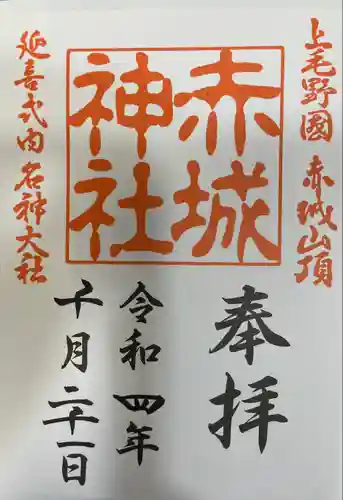 上毛野國 赤城山頂
赤城
神社
延喜式内 名神大社
奉拝
令和四年
十月二十一日